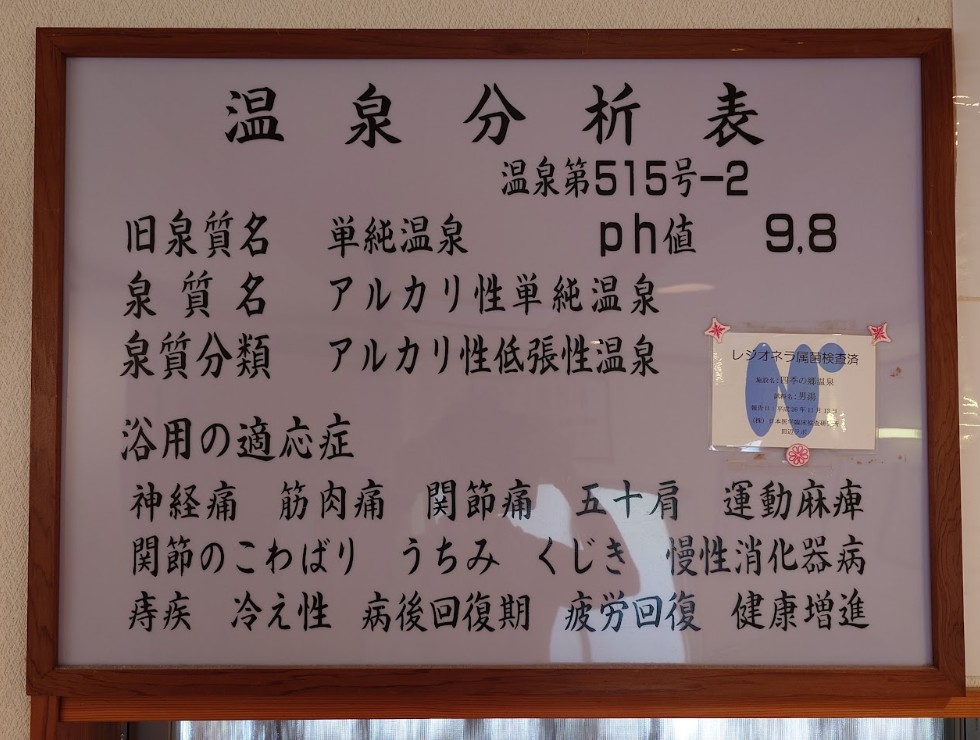 温泉分析表
温泉第515号−2
旧泉質名 単純温泉 ph値 9.8
泉質名 アルカリ性単純温泉
泉質分類 アルカリ性低張性温泉
レジオネラ属菌検査済
施設名：四季の郷温泉
試料名：男湯
浴用の適応症
神経痛 筋肉痛 関節痛 五十肩 運動麻痺
関節のこわばり うちみ くじき 慢性消化器病
痔疾 冷え性 病後回復期 疲労回復 健康増進